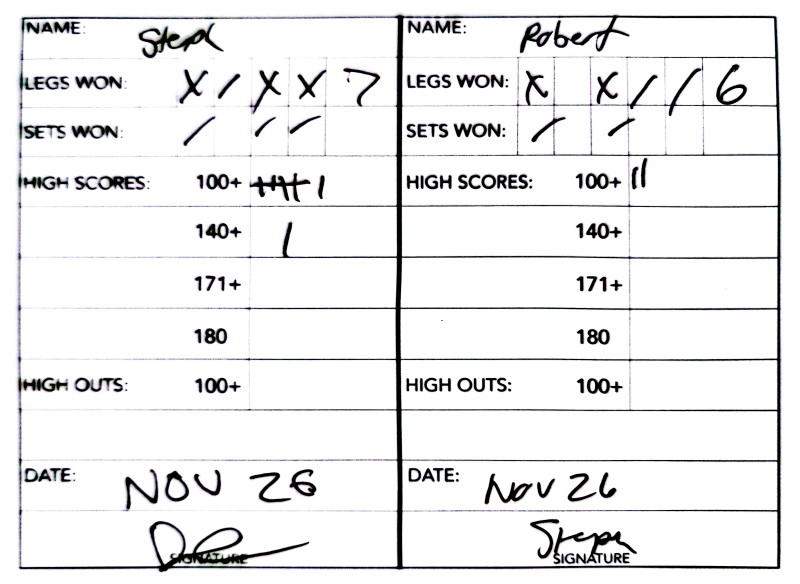 NAME: Steph NAME: Robert
LEGS WON: X / X X 7 LEGS WON: X X / / 6
SETS WON: / / / SETS WON: / /
HIGH SCORES: 100+ |||| | HIGH SCORES: 100+ ||
140+ | 140+
171+ 171+
180 180
HIGH OUTS: 100+ HIGH OUTS: 100+
DATE: NOV 26 DATE: Nov 26
Steph
SIGNATURE SIGNATURE